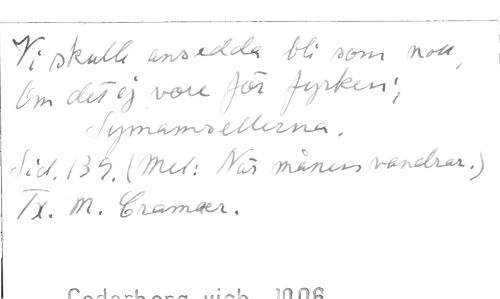 Vi skulle ansedda bli som nou,
Om det ej vore för fyrken;
Symamsellerna.
Sid. 139. (Mel: När månens vandrar.)
Tx. M. Cramær.
Cederborg visb. 1906